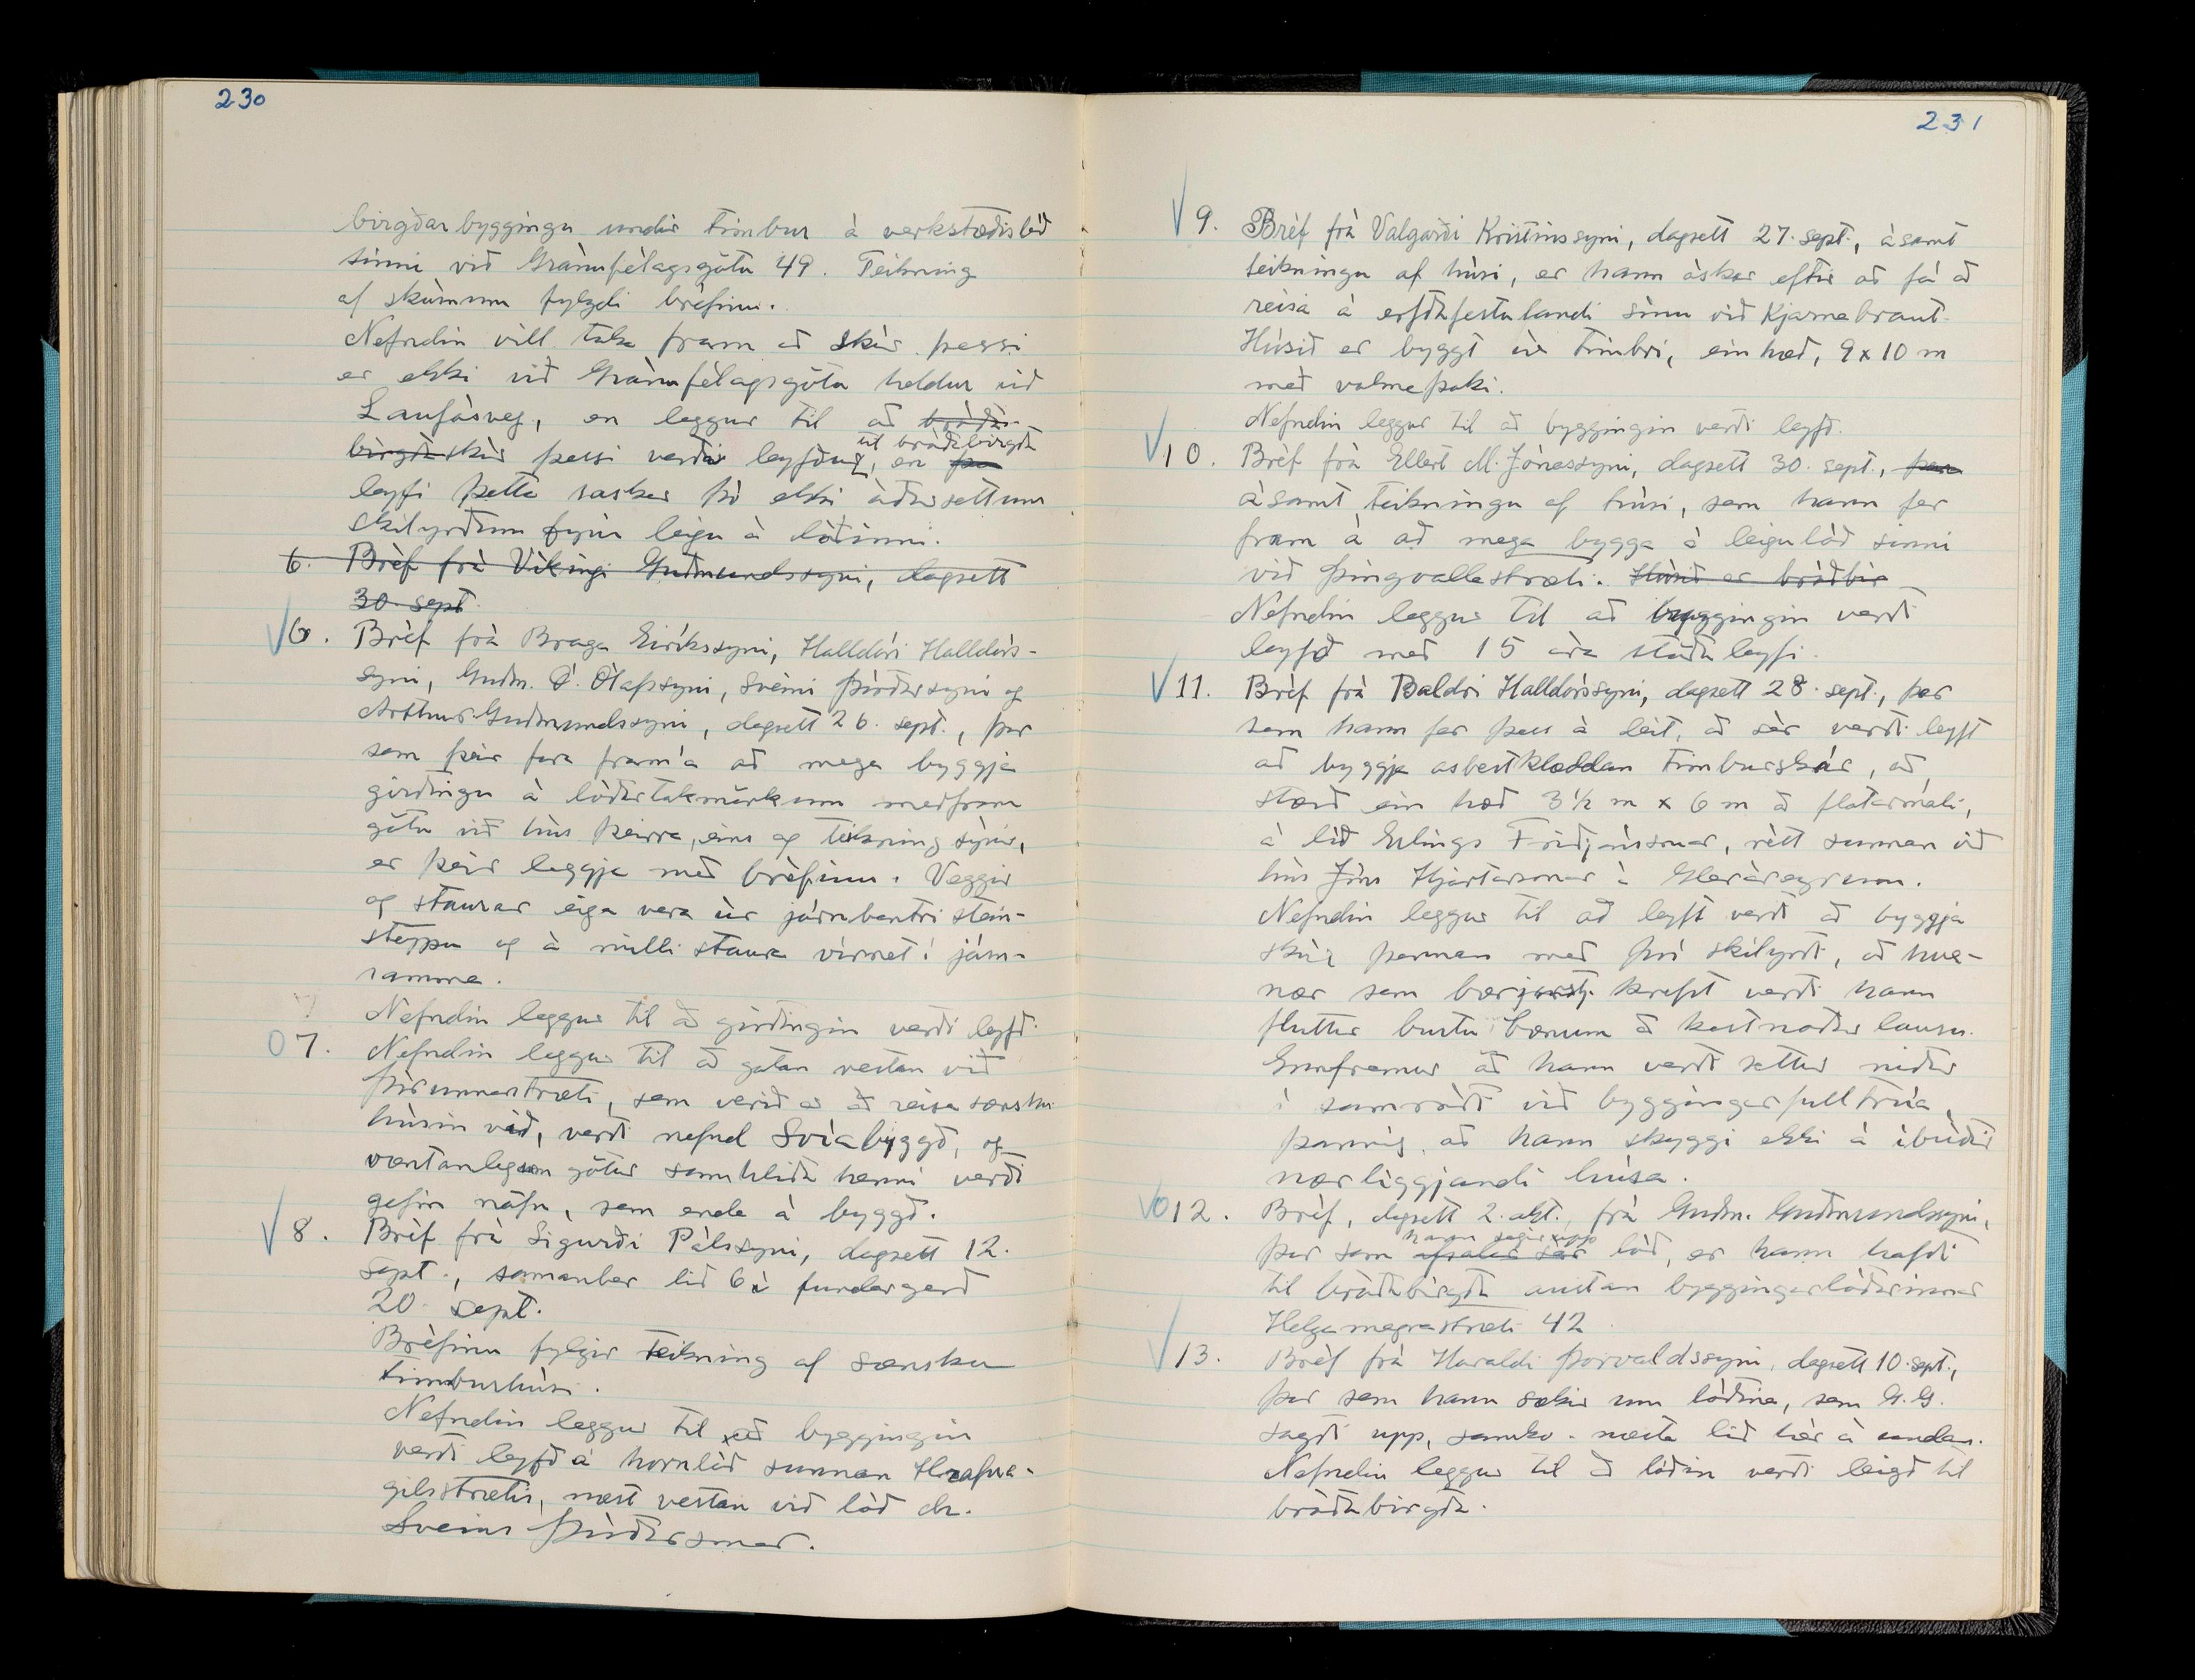 230
birgðarbyggingu undir timbur á verkstæðislóð
sinni við Gránufélagsgötu 49. Teikning
af skúrnum fylgdi bréfinu.
Nefndin vill taka fram að skúr þessi
er ekki við Gránufélagsgötu heldur við
Laufásveg, en leggur til að bráða-
birgða skúr þessi verði leyfður til bráðabirgða, en þa
leyfi þetta raskar þó ekki áður settum
skilyrðum fyrir leigu á lóðinni.
6. Bréf frá Víkingi Guðmundssyni, dagsett
30. sept.
6. Bréf frá Braga Eiríkssyni, Halldóri Halldórs-
syni, Guðm. Ó. Ólafssyni, Sveini Þórðarsyni og
Arthur Guðmundssyni, dagsett 26. sept., þar
sem þeir fara fram á að mega byggja
girðingu á lóðartakmörkum meðfram
götu við hús þeirra, eins og teikning sýnir,
er þeir leggja með bréfinu. Veggir
og staurar eiga vera úr járnbentri stein-
steypu og á milli staura vírnet í járn-
ramma.
Nefndin leggur til að girðingin verði leyfð.
7. Nefndin leggur til að gatan vestan við
Þórunnarstræti, sem verið er að reisa sænsku
húsin við, verði nefnd Svíabyggð, og
væntanlegum götur samhliða henni verði
gefin nöfn, sem enda á byggð.
8. Bréf frá Sigurði Pálssyni, dagsett 12.
sept., samanber lið 6 í fundargerð
20. sept.
Bréfinu fylgir teikning af sænsku
timburhúsi.
Nefndin leggur til að byggingin
verði leyfð á hornlóð sunnan Hrafna-
gilsstrætis, næst vestan við lóð dr.
Sveins Þórðarsonar.
231
9. Bréf frá Valgarði Kristinssyni, dagsett 27. sept., ásamt
teikningu af húsi, er hann óskar eftir að fá að
reisa á erfðafestulandi sínu við Kjarnabraut.
Húsið er byggt úr timbri, ein hæð, 9 x 10 m
með valmaþaki.
Nefndin leggur til að byggingin verði leyfð.
10. Bréf frá Ellert M. Jónassyni, dagsett 30. sept., þar
ásamt teikningu af húsi, sem hann fer
fram á að mega bygga á leigulóð sinni
við Þingvallastræti. Húsið er bráðbir
Nefndin leggur til að byggingin verði
leyfð með 15 ára stöðuleyfi.
11. Bréf frá Baldri Halldórssyni, dagsett 28. sept., þar
sem hann fer þess á leit, að sér verði leyft
að byggja asbestklæddan timburskúr, að
stærð ein hæð 3½ m x 6 m að flatarmáli,
á lóð Erlings Friðjónssonar, rétt sunnan við
hús Jóns Hjartarsonar á Gleráreyrum.
Nefndin leggur til að leyft verði að byggja
skúr þennan með því skilyrði, að hve-
nær sem bæjarstj. krefst verði hann
fluttur burtu bænum að kostnaðarlausu.
Ennfremur að hann verði settur niður
í samráði við byggingarfulltrúa,
þannig, að hann skyggi ekki á íbúðir
nærliggjandi húsa.
12. Bréf, dagsett 2. okt., frá Guðm. Guðmundssyni,
þar sem hann segir upp afsalar sér lóð, er hann hafði
til bráðabirgða austan byggingarlóðarinnar
Helgamagrastræti 42.
13. Bréf frá Haraldi Þorvaldssyni, dagsett 10. sept.,
þar sem hann sækir um lóðina, sem G.G.
sagði upp, samkv. næsta lið hér á undan.
Nefndin leggur til að lóðin verði leigð til
bráðabirgða.